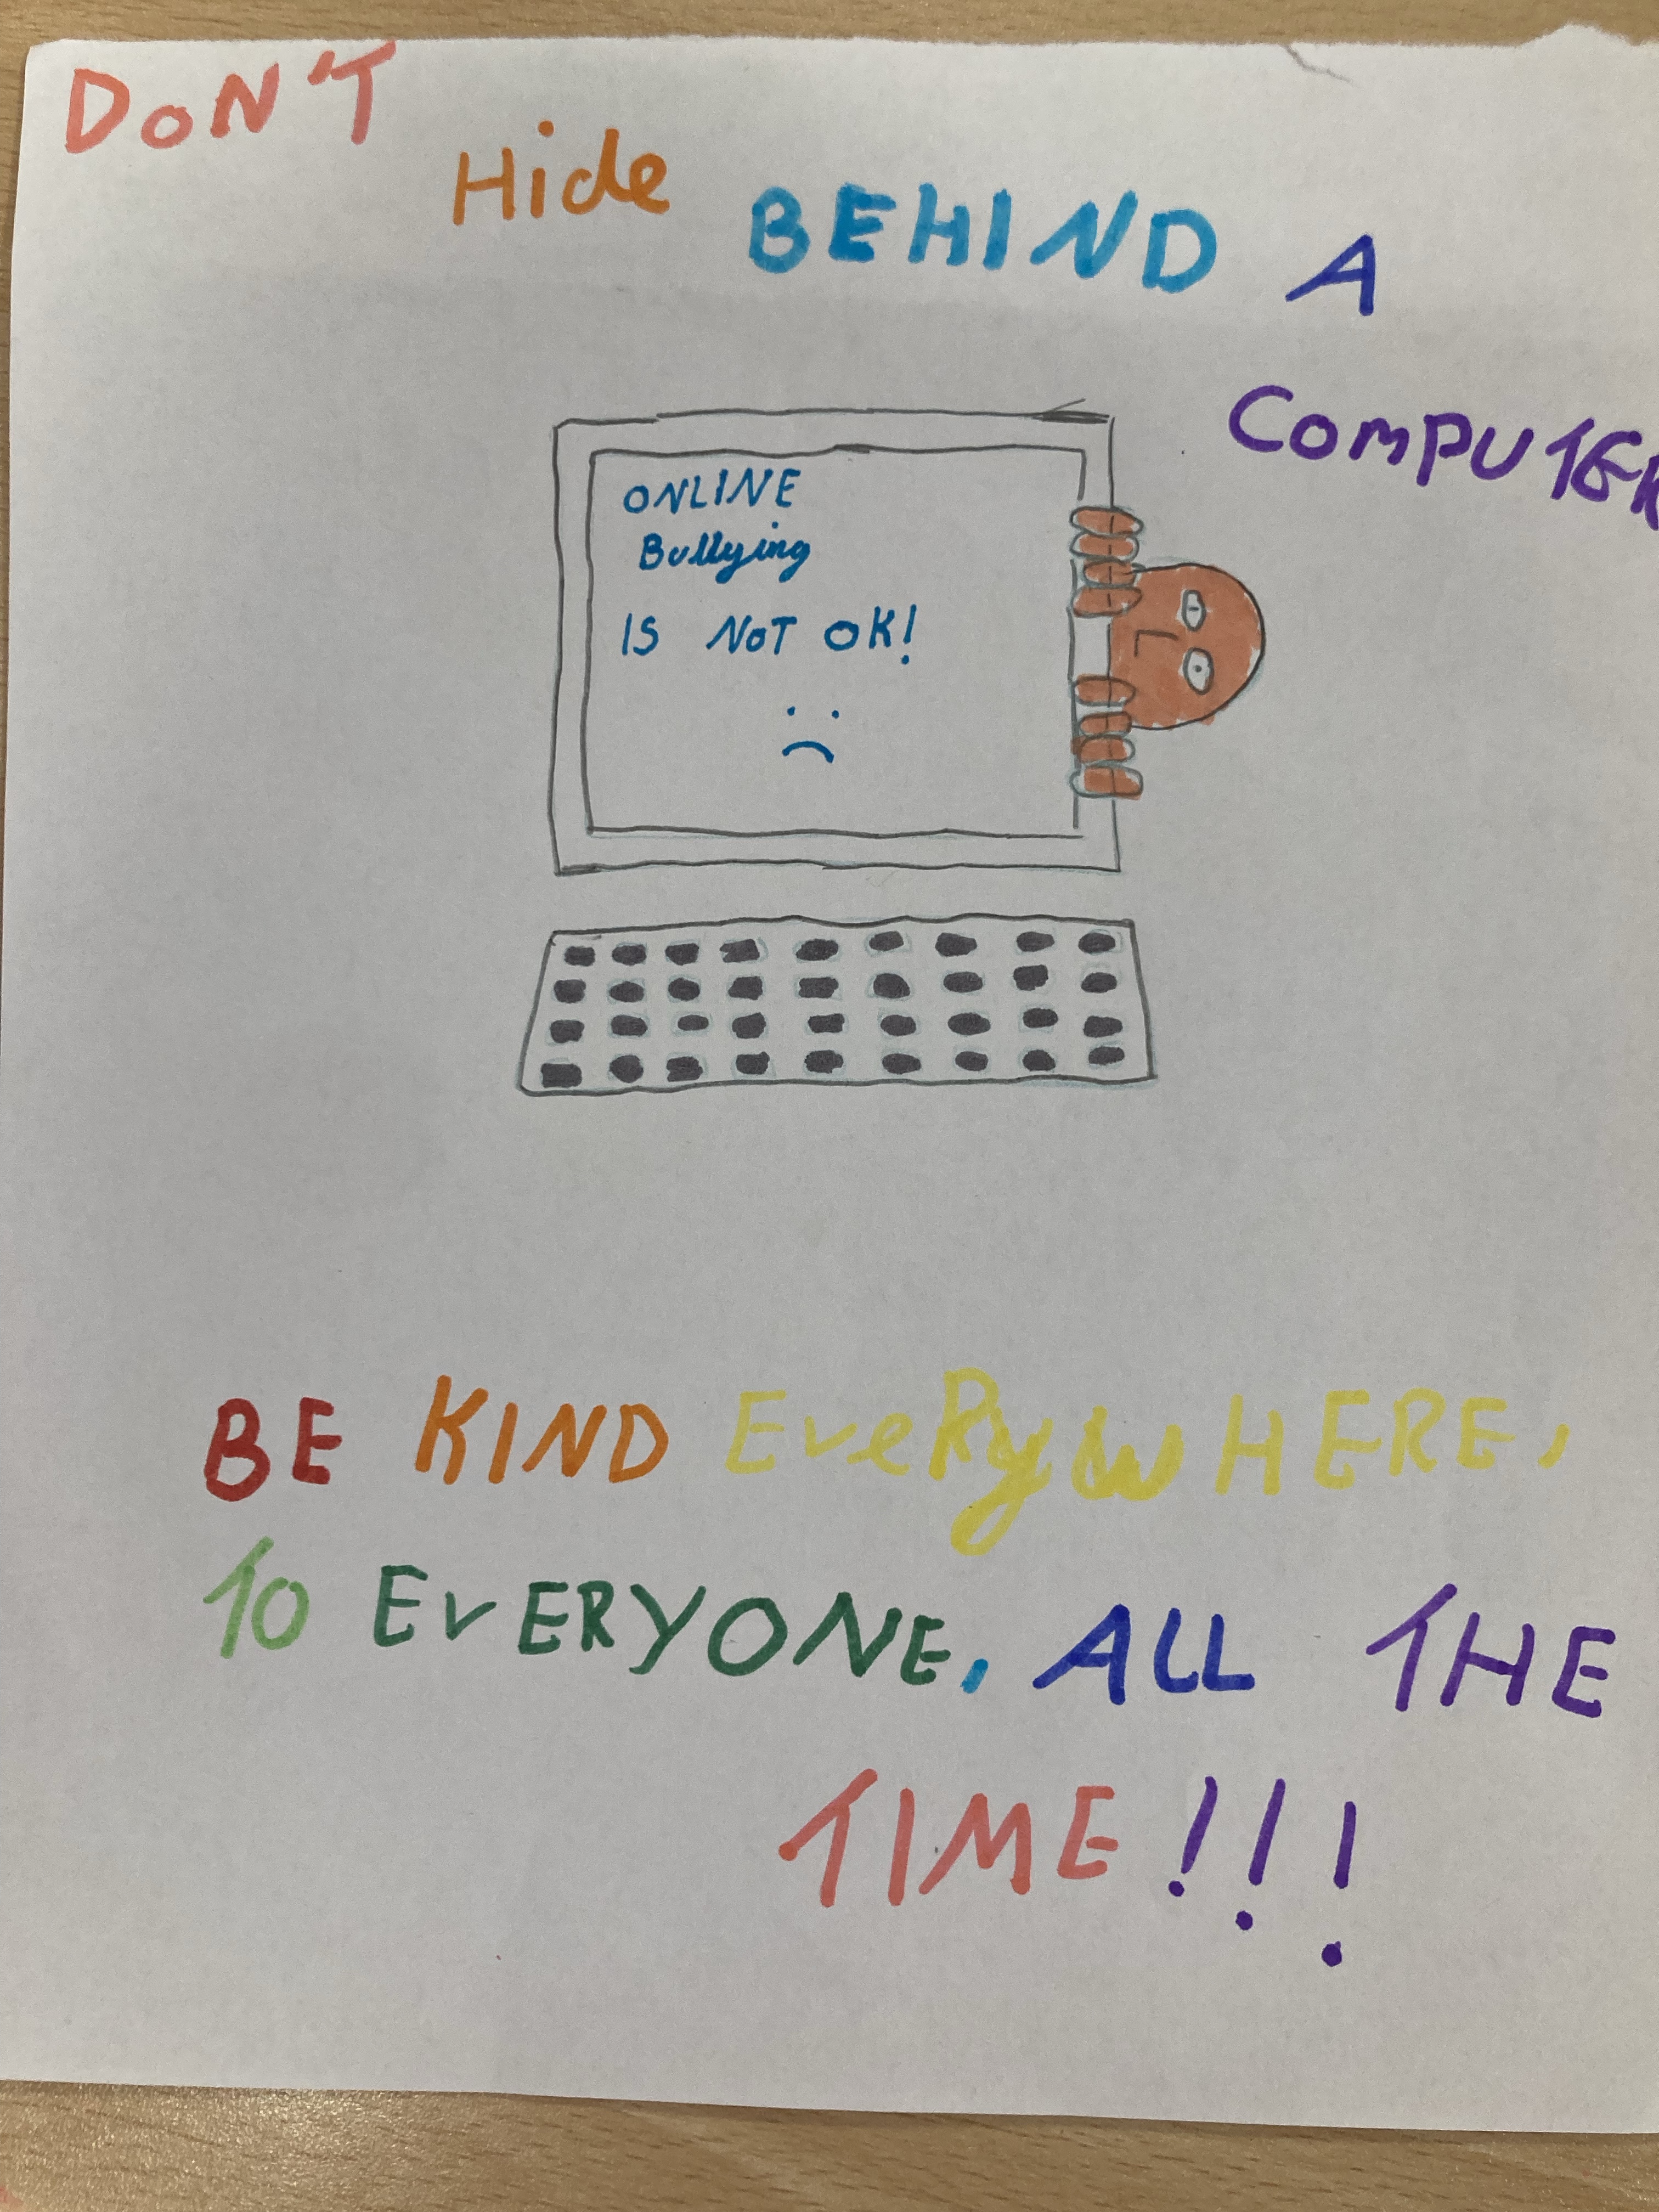 DON'T Hide BEHIND A
COMPUTER
ONLINE
Bullying
IS NOT OK!
BE KIND EveRywHERE,
TO EvERYONE, ALL THE
TIME!!!